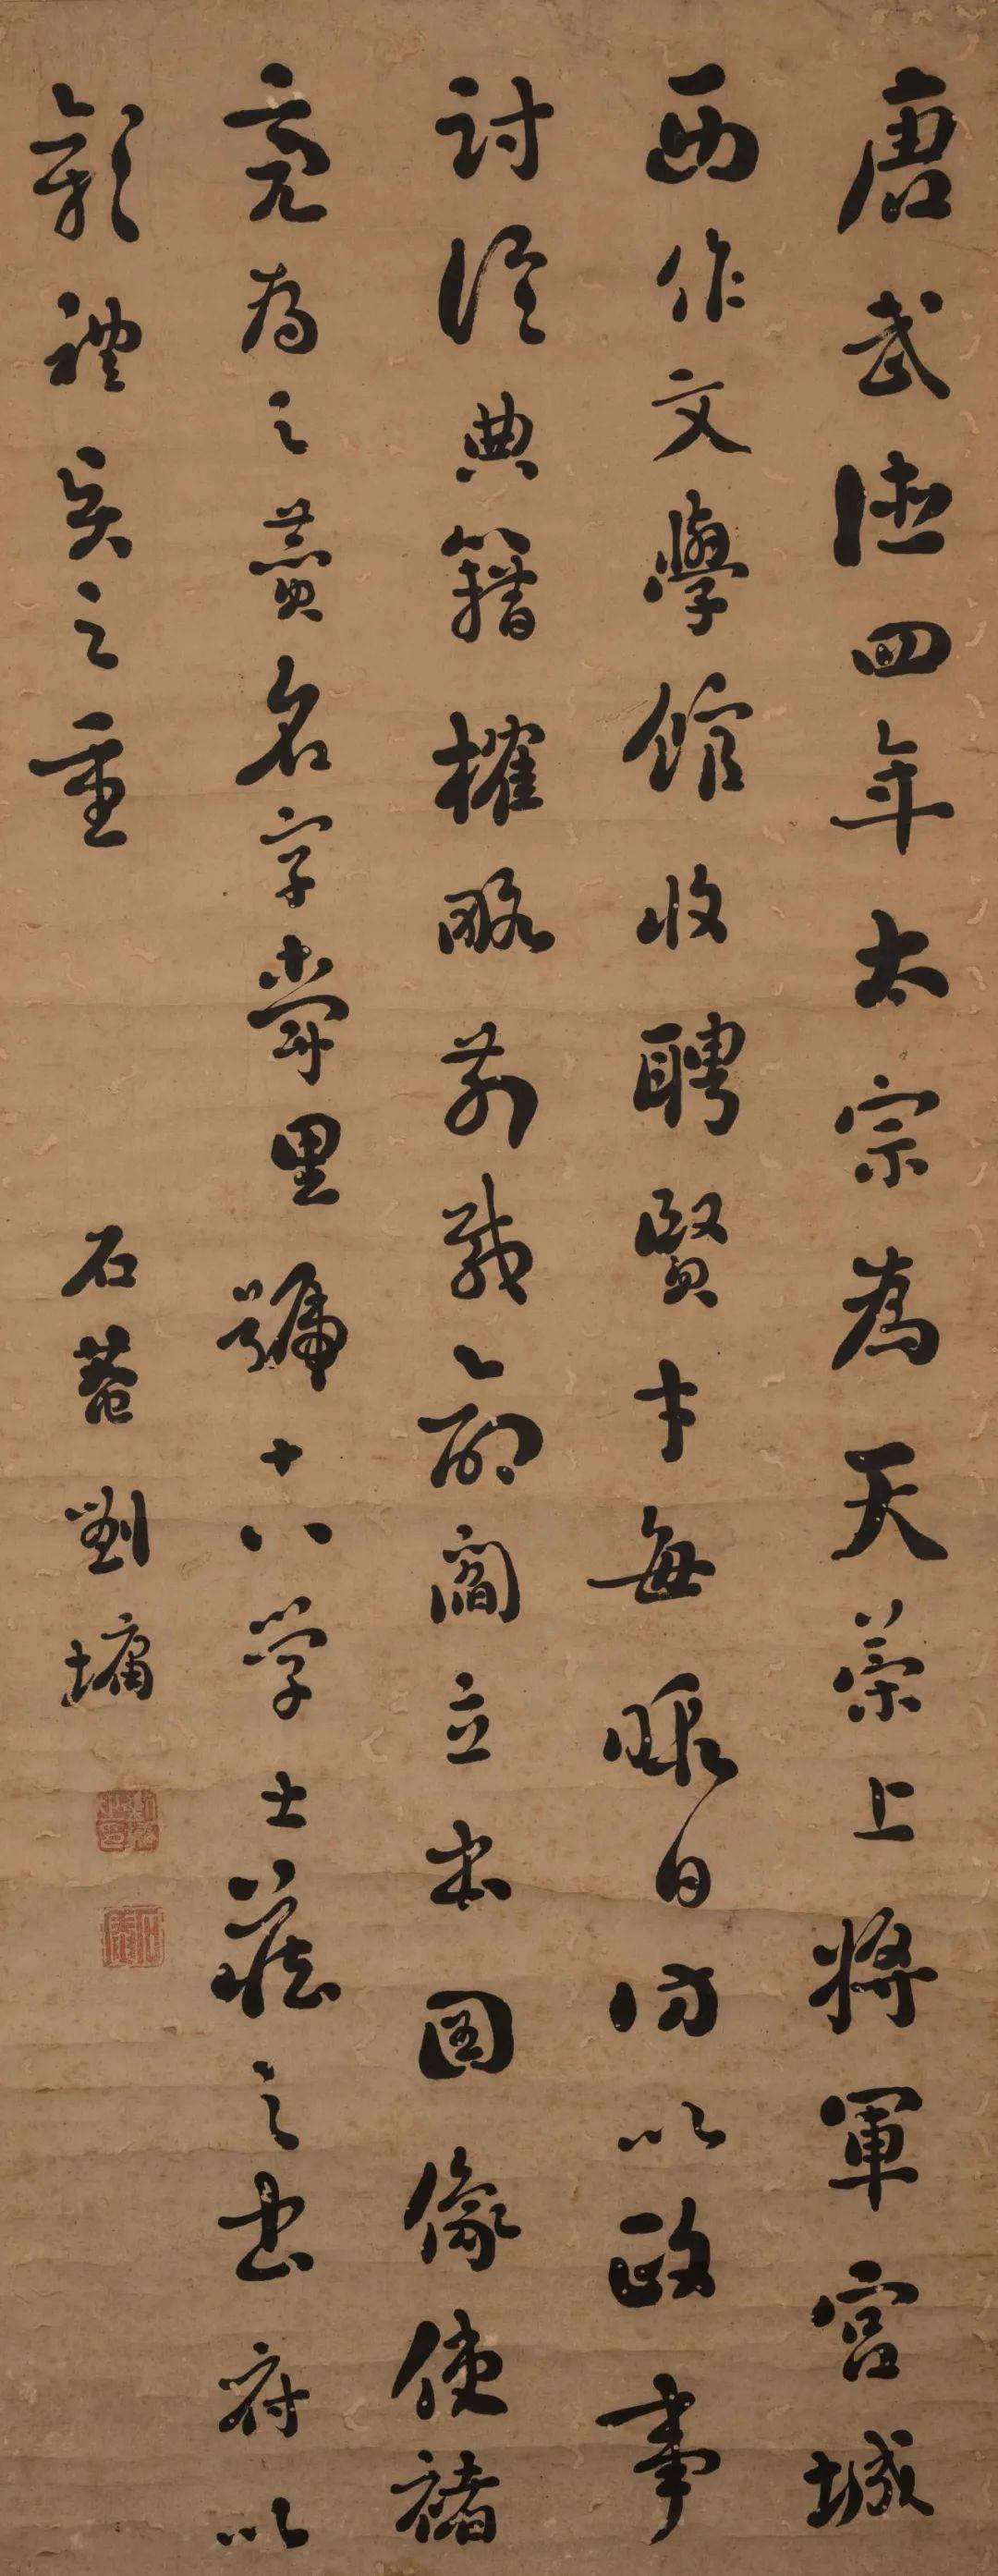 唐武德四年太宗為天策上將軍宮城
西作文學館收聘賢才每暇日訪以政事
討論典籍榷略前載命閻立本圖像使褚
亮為之贊名字爵里號十八学士藏之書府以
彰禮賢之重
石菴劉墉
劉墉之印
石菴